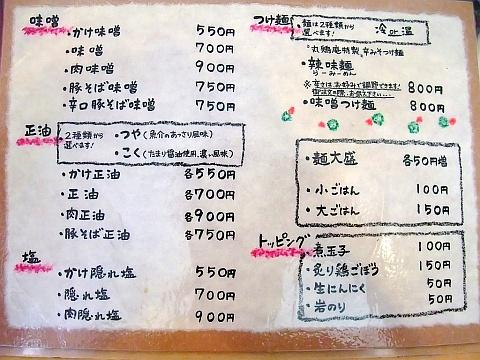 味噌
・かけ味噌 550円
・味噌 700円
・肉味噌 900円
・豚そば味噌 750円
・辛口豚そば味噌 750円
正油
2種類から
選べます!
・つや(魚介のあっさり風味)
・こく(たまり醤油使用、濃い風味)
・かけ正油 各550円
・正油 各700円
・肉正油 各900円
・豚そば正油 各750円
塩
・かけ隠れ塩 550円
・隠れ塩 700円
・肉隠れ塩 900円
つけ麺
・麺は2種類から
選べます!
冷or温
・丸鶏庵特製 辛みそつけ麺
・辣味麺 800円
らーみーめん
※辛さはお好みで調節できます!
御注文の際、お伝え下さい…
・味噌つけ麺 800円
・麺大盛 各50円増
・小ごはん 100円
・大ごはん 150円
トッピング
・煮玉子 100円
・炙り鶏ごぼう 150円
・生にんにく 50円
・岩のり 50円